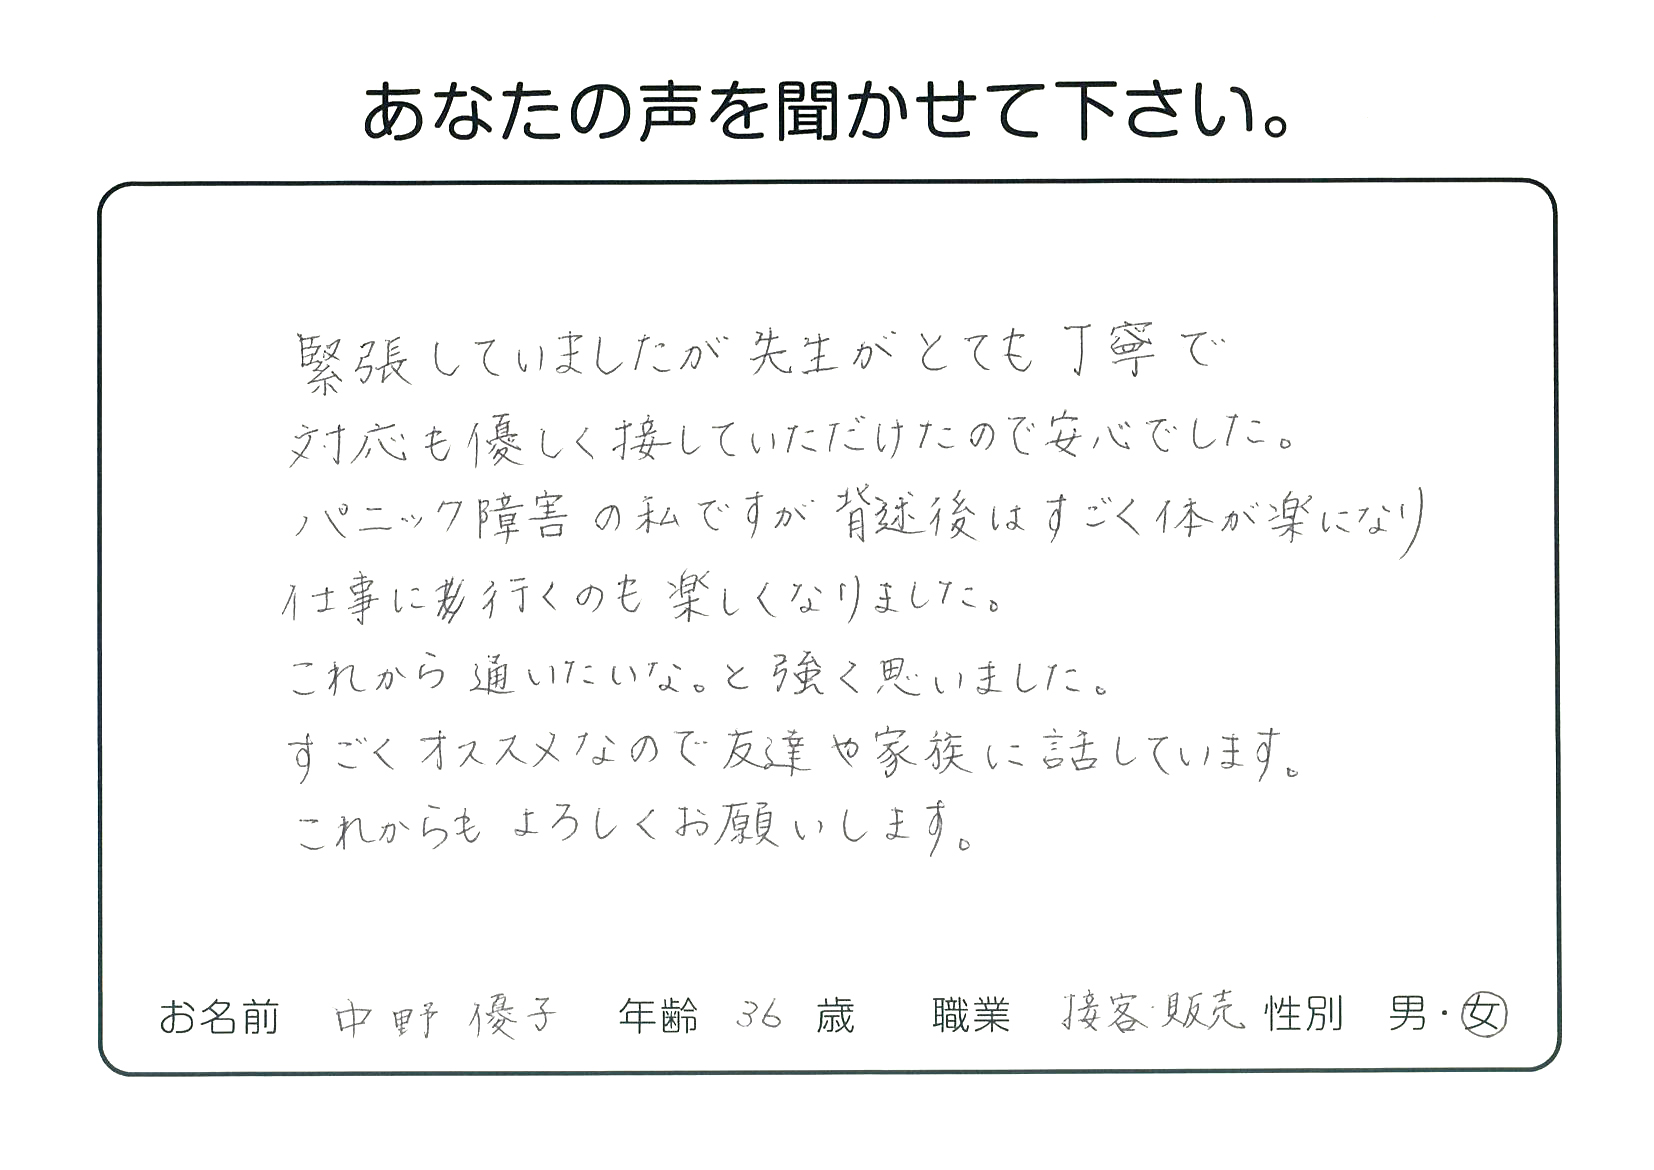 あなたの声を聞かせて下さい。
緊張していましたが先生がとても丁寧で
対応も優しく接していただけたので安心でした。
パニック障害の私ですが背述後はすごく体が楽になり
仕事に行くのも楽しくなりました。
これから通いたいな。と強く思いました。
すごくオススメなので友達や家族に話しています。
これからもよろしくお願いします。
お名前 中野優子 年齢 36 歳 職業 接客・販売 性別 男・女